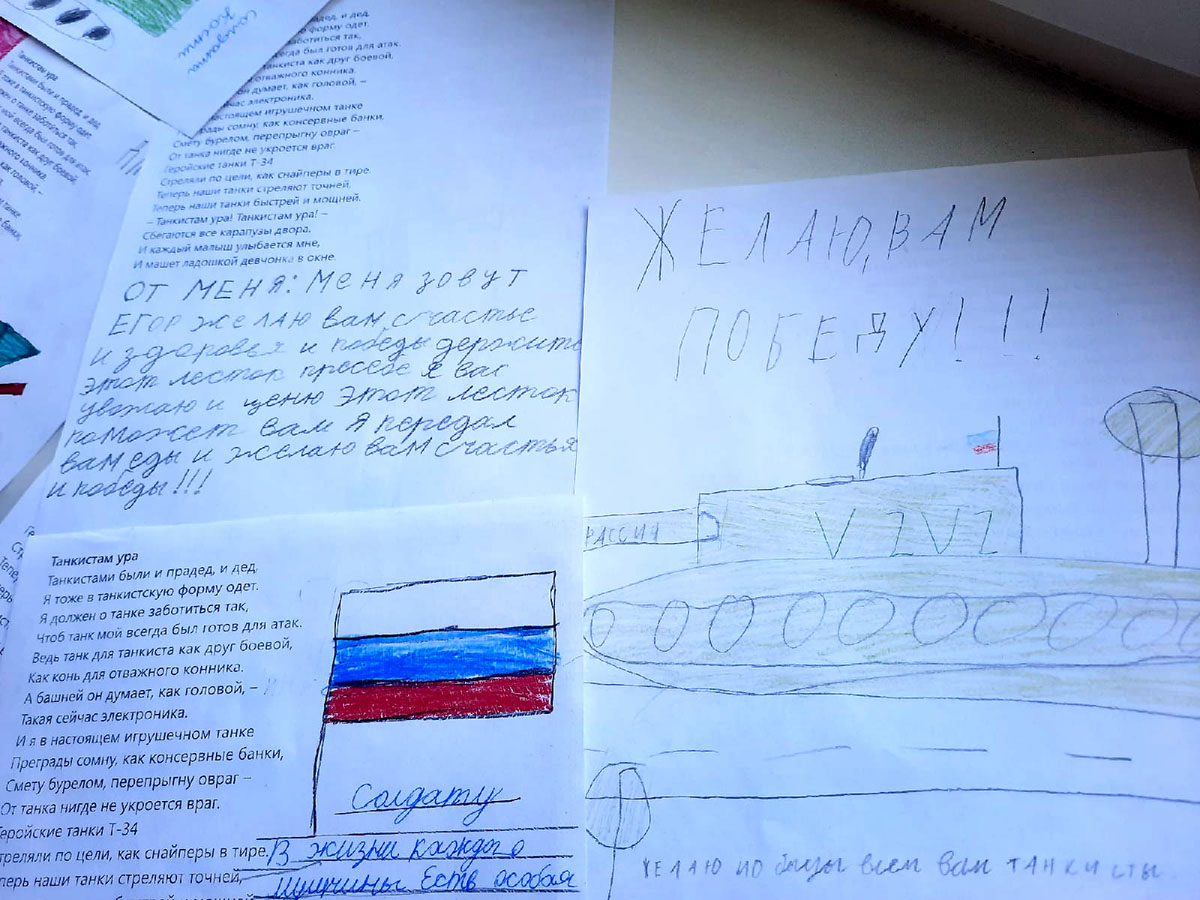 Солдату
Танкистам ура
Танкистами были и прадед, и дед,
прадед, и дед,
форму одет.
заботиться так,
всегда был готов для атак.
танкиста как друг боевой,
отважного конника.
он думает, как головой, –
электроника.
настоящем игрушечном танке
сомну, как консервные банки,
Смету бурелом, перепрыгну овраг –
От танка нигде не укроется враг.
Геройские танки Т-34
Стреляли по цели, как снайперы в тире.
Теперь наши танки стреляют точней,
Теперь наши танки быстрей и мощней.
– Танкистам ура! Танкистам ура! –
Сбегаются все карапузы двора,
И каждый малыш улыбается мне,
И машет ладошкой девчонка в окне.
ОТ МЕНЯ: Меня зовут
ЕГОР желаю вам счастье
и здоровья и победы держите
этот лесток я вас
уважаю и ценю этот лесток
поможет вам Я передал
вам еды и желаю вам счастья
и победы!!!
ЖЕЛАЮ, ВАМ
ПОБЕДУ!!!
РАССИИ
V Z V Z
желаю победы всем вам танкисты.
Танкистам ура
Танкистами были и прадед, и дед,
Я тоже в танкистскую форму одет.
Я должен о танке заботиться так,
Чтоб танк мой всегда был готов для атак.
Ведь танк для танкиста как друг боевой,
Как конь для отважного конника.
А башней он думает, как головой, –
Такая сейчас электроника.
И я в настоящем игрушечном танке
Преграды сомну, как консервные банки,
Смету бурелом, перепрыгну овраг –
От танка нигде не укроется враг.
Геройские танки Т-34
Стреляли по цели, как снайперы в тире.
Теперь наши танки стреляют точней,
Солдату
В жизни каждого
мужчины есть особая